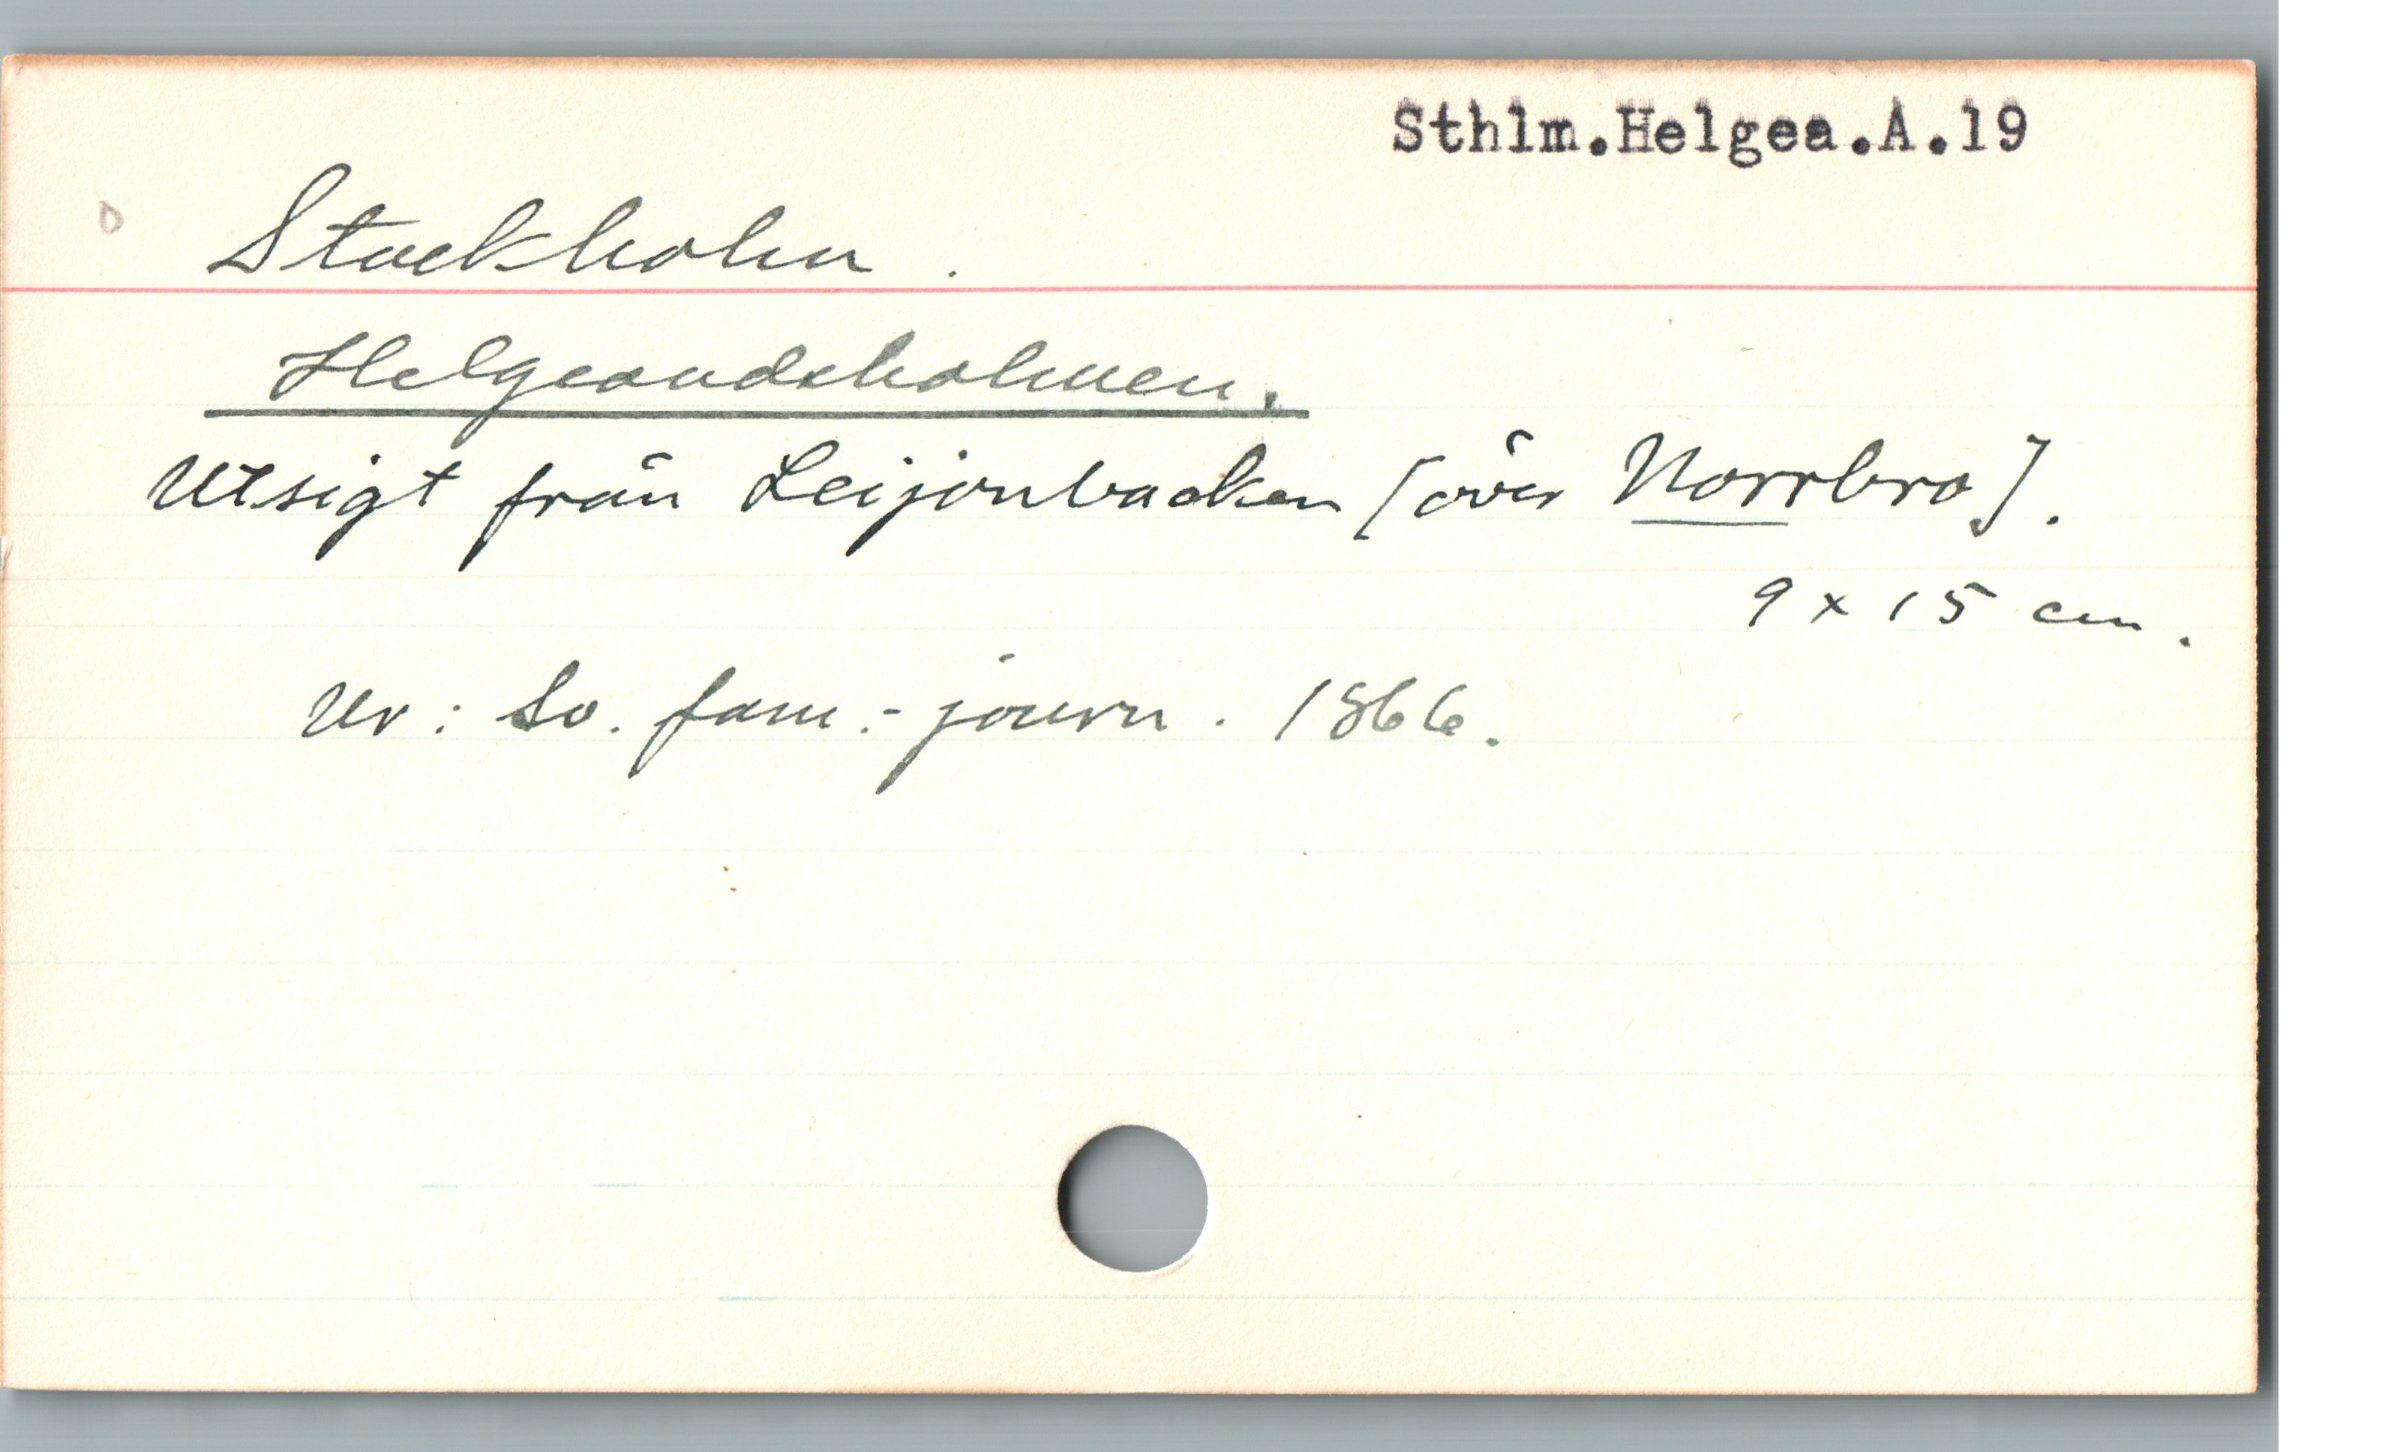 Sthlm.Helgea.A.19
Stockholm.
Helgeandsholmen.
Utsigt från Leijonbacken [över Norrbro].
9 x 15 cm.
Ur: Sv. fam.-journ. 1866.